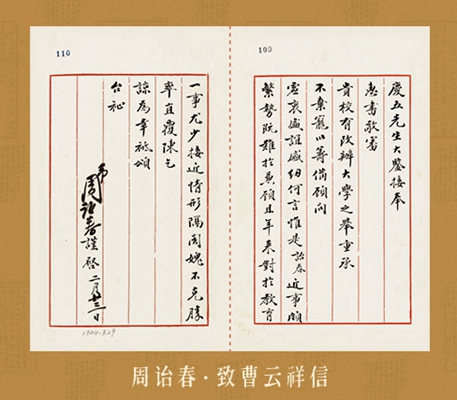 109
慶五先生大鑒接奉
惠書敬審
貴校有改辦大學之舉重承
不棄寵以籌備顧問
虛衷盛誼感紉何言惟是詒春近事頗
繁勢既難於兼顧且年來對於教育
110
一事尤少接近情形隔閡媿不克勝
率直覆陳乞
諒為幸祗頌
台祉
弟周詒春謹啓 二月廿三日
周诒春·致曹云祥信